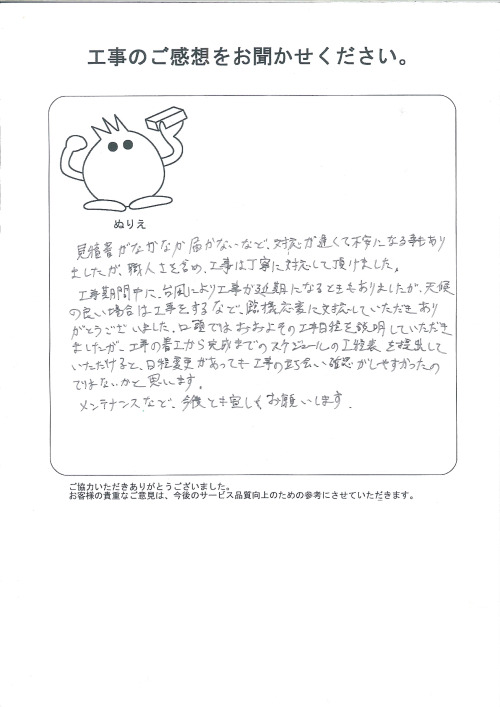 工事のご感想をお聞かせください。
ぬりえ
見積書がなかなか届かないなど、対応が遅くて不安になる事もあり
ましたが、職人さん含め、工事は丁寧に対応して頂けました。
工事期間中に、台風により工事が延期になるときもありましたが、天候
の良い場合は工事をするなど、臨機応変に対応していただきあり
がとうございました。口頭ではおおよその工事日程を説明していただき
ましたが、工事の着工から完成までのスケジュールの工程表を提出して
いただけると、日程変更があっても工事の立ち会い確認がしやすかったの
ではないかと思います。
メンテナンスなど、今後とも宜しくお願いします。
ご協力いただきありがとうございました。
お客様の貴重なご意見は、今後のサービス品質向上のための参考にさせていただきます。